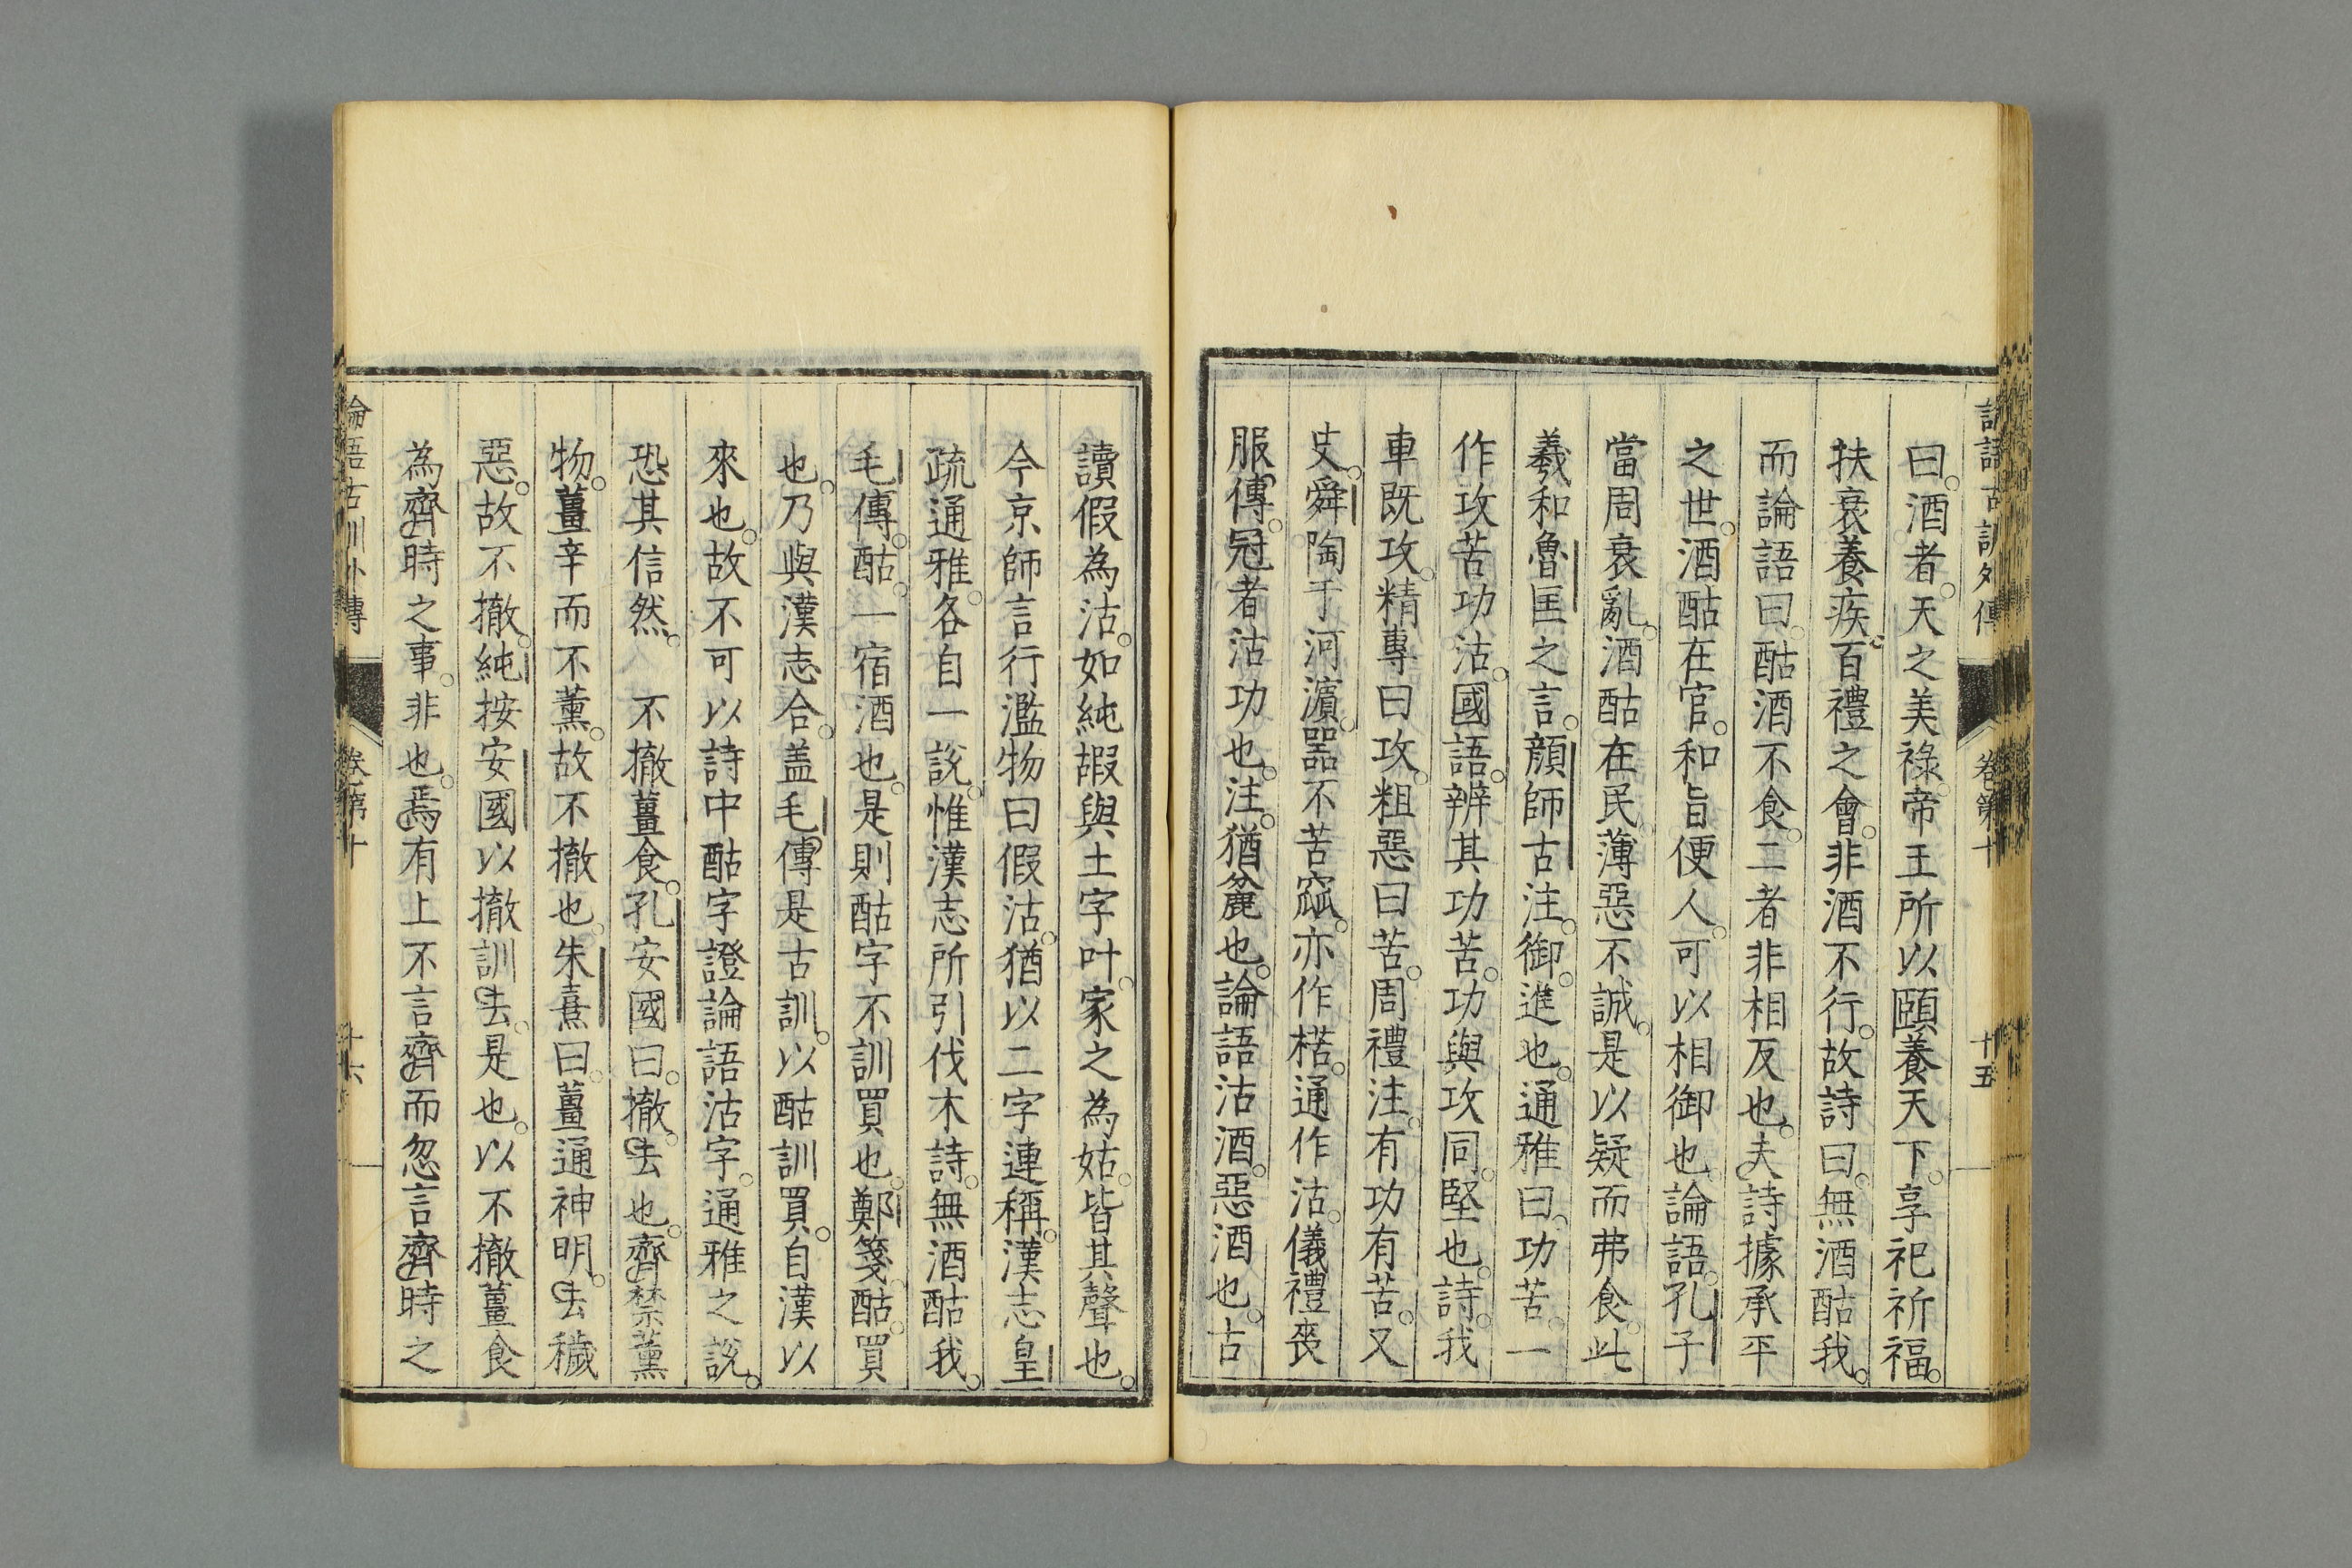 曰。酒者。天之美祿。帝王所以頤養天下。享祀祈福。
扶衰養疾。百禮之會。非酒不行。故詩曰。無酒酤我。
而論語曰。酤酒不食。二者非相反也。夫詩據承平
之世。酒酤在官。和旨便人。可以相御也。論語。孔子
當周衰亂。酒酤在民。薄惡不誠。是以疑而弗食。此
羲和魯匡之言。顏師古注。御。進也。通雅曰。功苦。一
作攻苦功沽。國語。辨其功苦。功與攻同。堅也。詩。我
車既攻。精專曰攻。粗惡曰苦。周禮注。有功有苦。又
史。舜陶于河濵。噐不苦窳。亦作楛。通作沽。儀禮喪
服傳。冠者沽功也。注。猶麄也。論語沽酒。惡酒也。古
讀假為沽。如純嘏與土字叶。家之為姑。皆其聲也。
今京師言行濫物曰假沽。猶以二字連稱。漢志皇
疏通雅。各自一說。惟漢志所引伐木詩。無酒酤我。
毛傳。酤。一宿酒也。是則酤字不訓買也。鄭箋。酤。買
也。乃與漢志合。盖毛傳是古訓。以酤訓買。自漢以
來也。故不可以詩中酤字證論語沽字。通雅之說。
恐其信然。 不撤薑食。孔安國曰。撤。去也。齊禁薰
物。薑辛而不薰。故不撤也。朱熹曰。薑通神明。去穢
惡。故不撤。純按安國以撤訓去。是也。以不撤薑食
為齊時之事。非也。焉有上不言齊而忽言齊時之
論語古訓外傳 卷第十 十五
論語古訓外傳 卷第十 十六